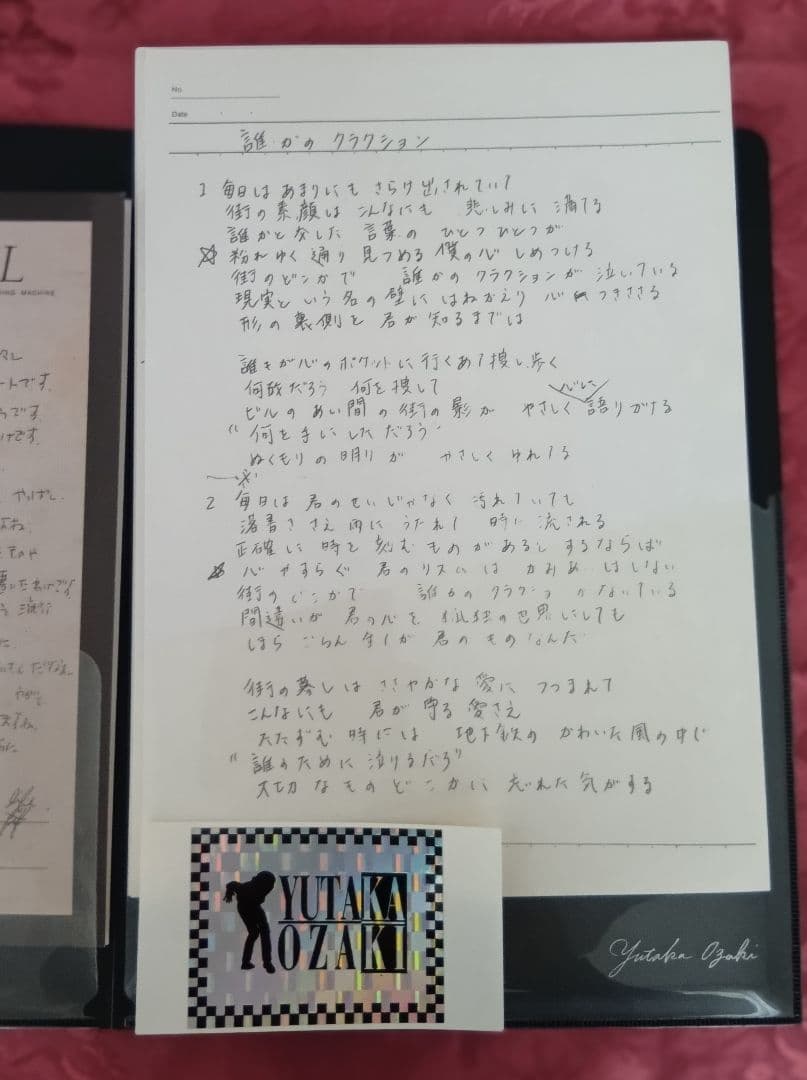 No.
Date
誰かのクラクション
1 毎日は あまりにも さらけ出されていて
街の素顔は こんなにも 悲しみに 満てる
誰かと交した 言葉の ひとつひとつが
☆ 紛れゆく 通り 見つめる 僕の心 しめつける
街のどこかで 誰かの クラクションが 泣いている
現実という名の壁に はねかえり 心 つきささる
形の裏側を 君が 知るまでは
誰もが心のポケットに 行くあて捜し歩く
何故だろう 何を捜して
心に
ビルのあい間の街の影が やさしく 語りかける
"何を手にしただろう"
ぬくもりの明りが やさしく ゆれてる
2 毎日は 君のせいじゃなく 汚れていても
落書きさえ 雨に うたれて 時に 流される
正確に 時を 刻むものがあると するならば
☆ 心 やすらぐ 君のリズムは かみあ はしない
街の どこかで 誰かの クラクション がないている
間違いが 君の心を 孤独の世界にしても
ほら ごらん 全てが 君の ものなんだ
街の暮しは ささやかな 愛に つつまれて
こんなにも 君が 守る 愛さえ
たたずむ 時には 地下鉄の かわいた 風の中で
"誰のために 泣けるだろ"
大切なもの どこかに 忘れた 気がする
YUTAKA
OZAKI
Yutaka Ozaki
L
ING MACHINE
ートです。
うです。
けです。
やっぱし